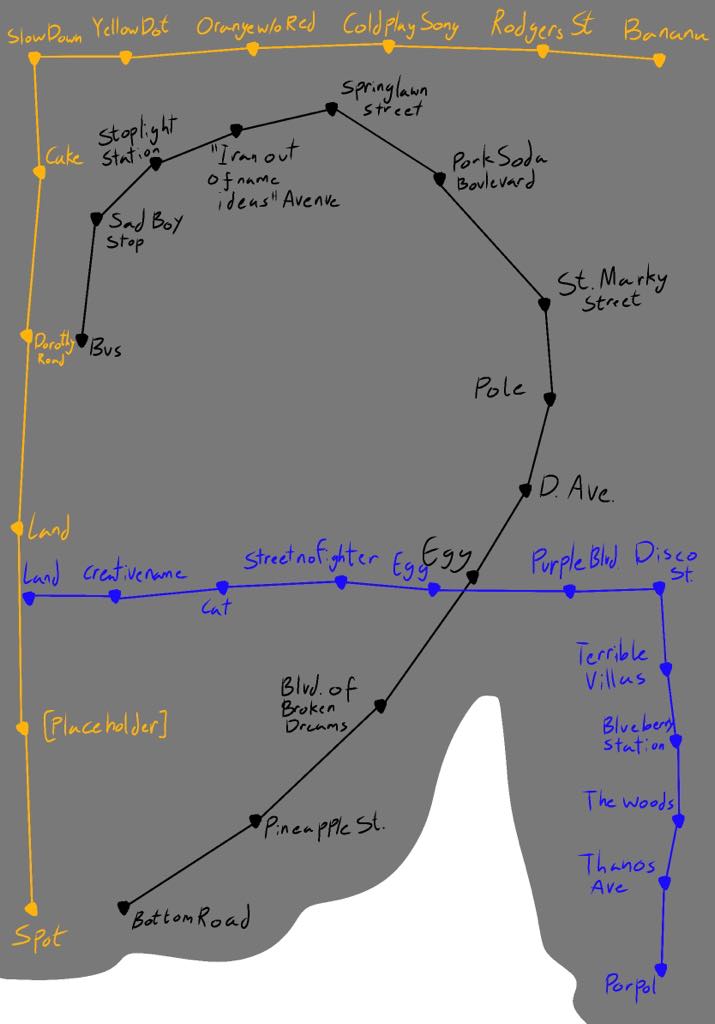 SlowDown
YellowDot
Orangew/oRed
ColdplaySong
Rodgers St
Banana
Cake
Dorothy
Road
Land
[Placeholder]
Spot
Springlawn
Street
Stoplight
Station
"I ran out
of name
ideas" Avenue
Pork Soda
Boulevard
Sad Boy
Stop
Bus
St. Marky
Street
Pole
D. Ave.
Egg
Blvd. of
Broken
Dreams
Pineapple St.
Bottom Road
Land
Creativename
Cat
Streetnofighter
Egg
Purple Blvd.
Disco
St.
Terrible
Villas
Blueberry
Station
The Woods
Thanos
Ave
Porpol